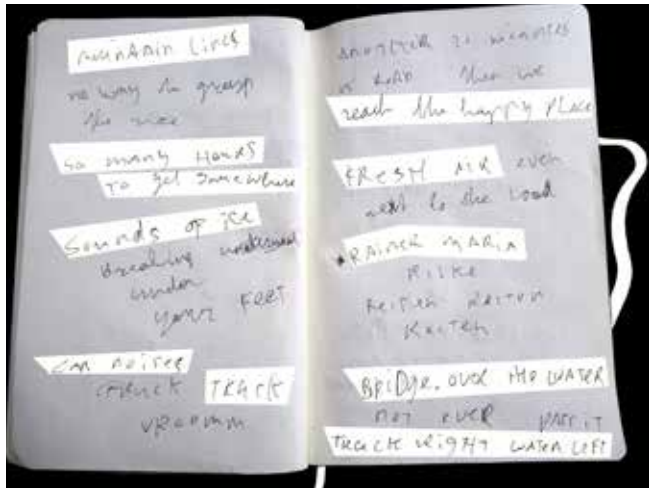 mountain lines
no way to grasp
the size
so many Hours
to get somewhere
Sounds of ice
breaking underneath
under
your FEET
CAR noises
TRUCK TRACK
VROOMM
ANOTHER 20 minutes
of ROAD then we
reach the happy PLACE
FRESH AIR even
next to the road
RAINER MARIA
RILKE
Reiten Reiten
Reiten
BRiDge. over the WATER
not over
TRACK RiGHT WATER LEFT